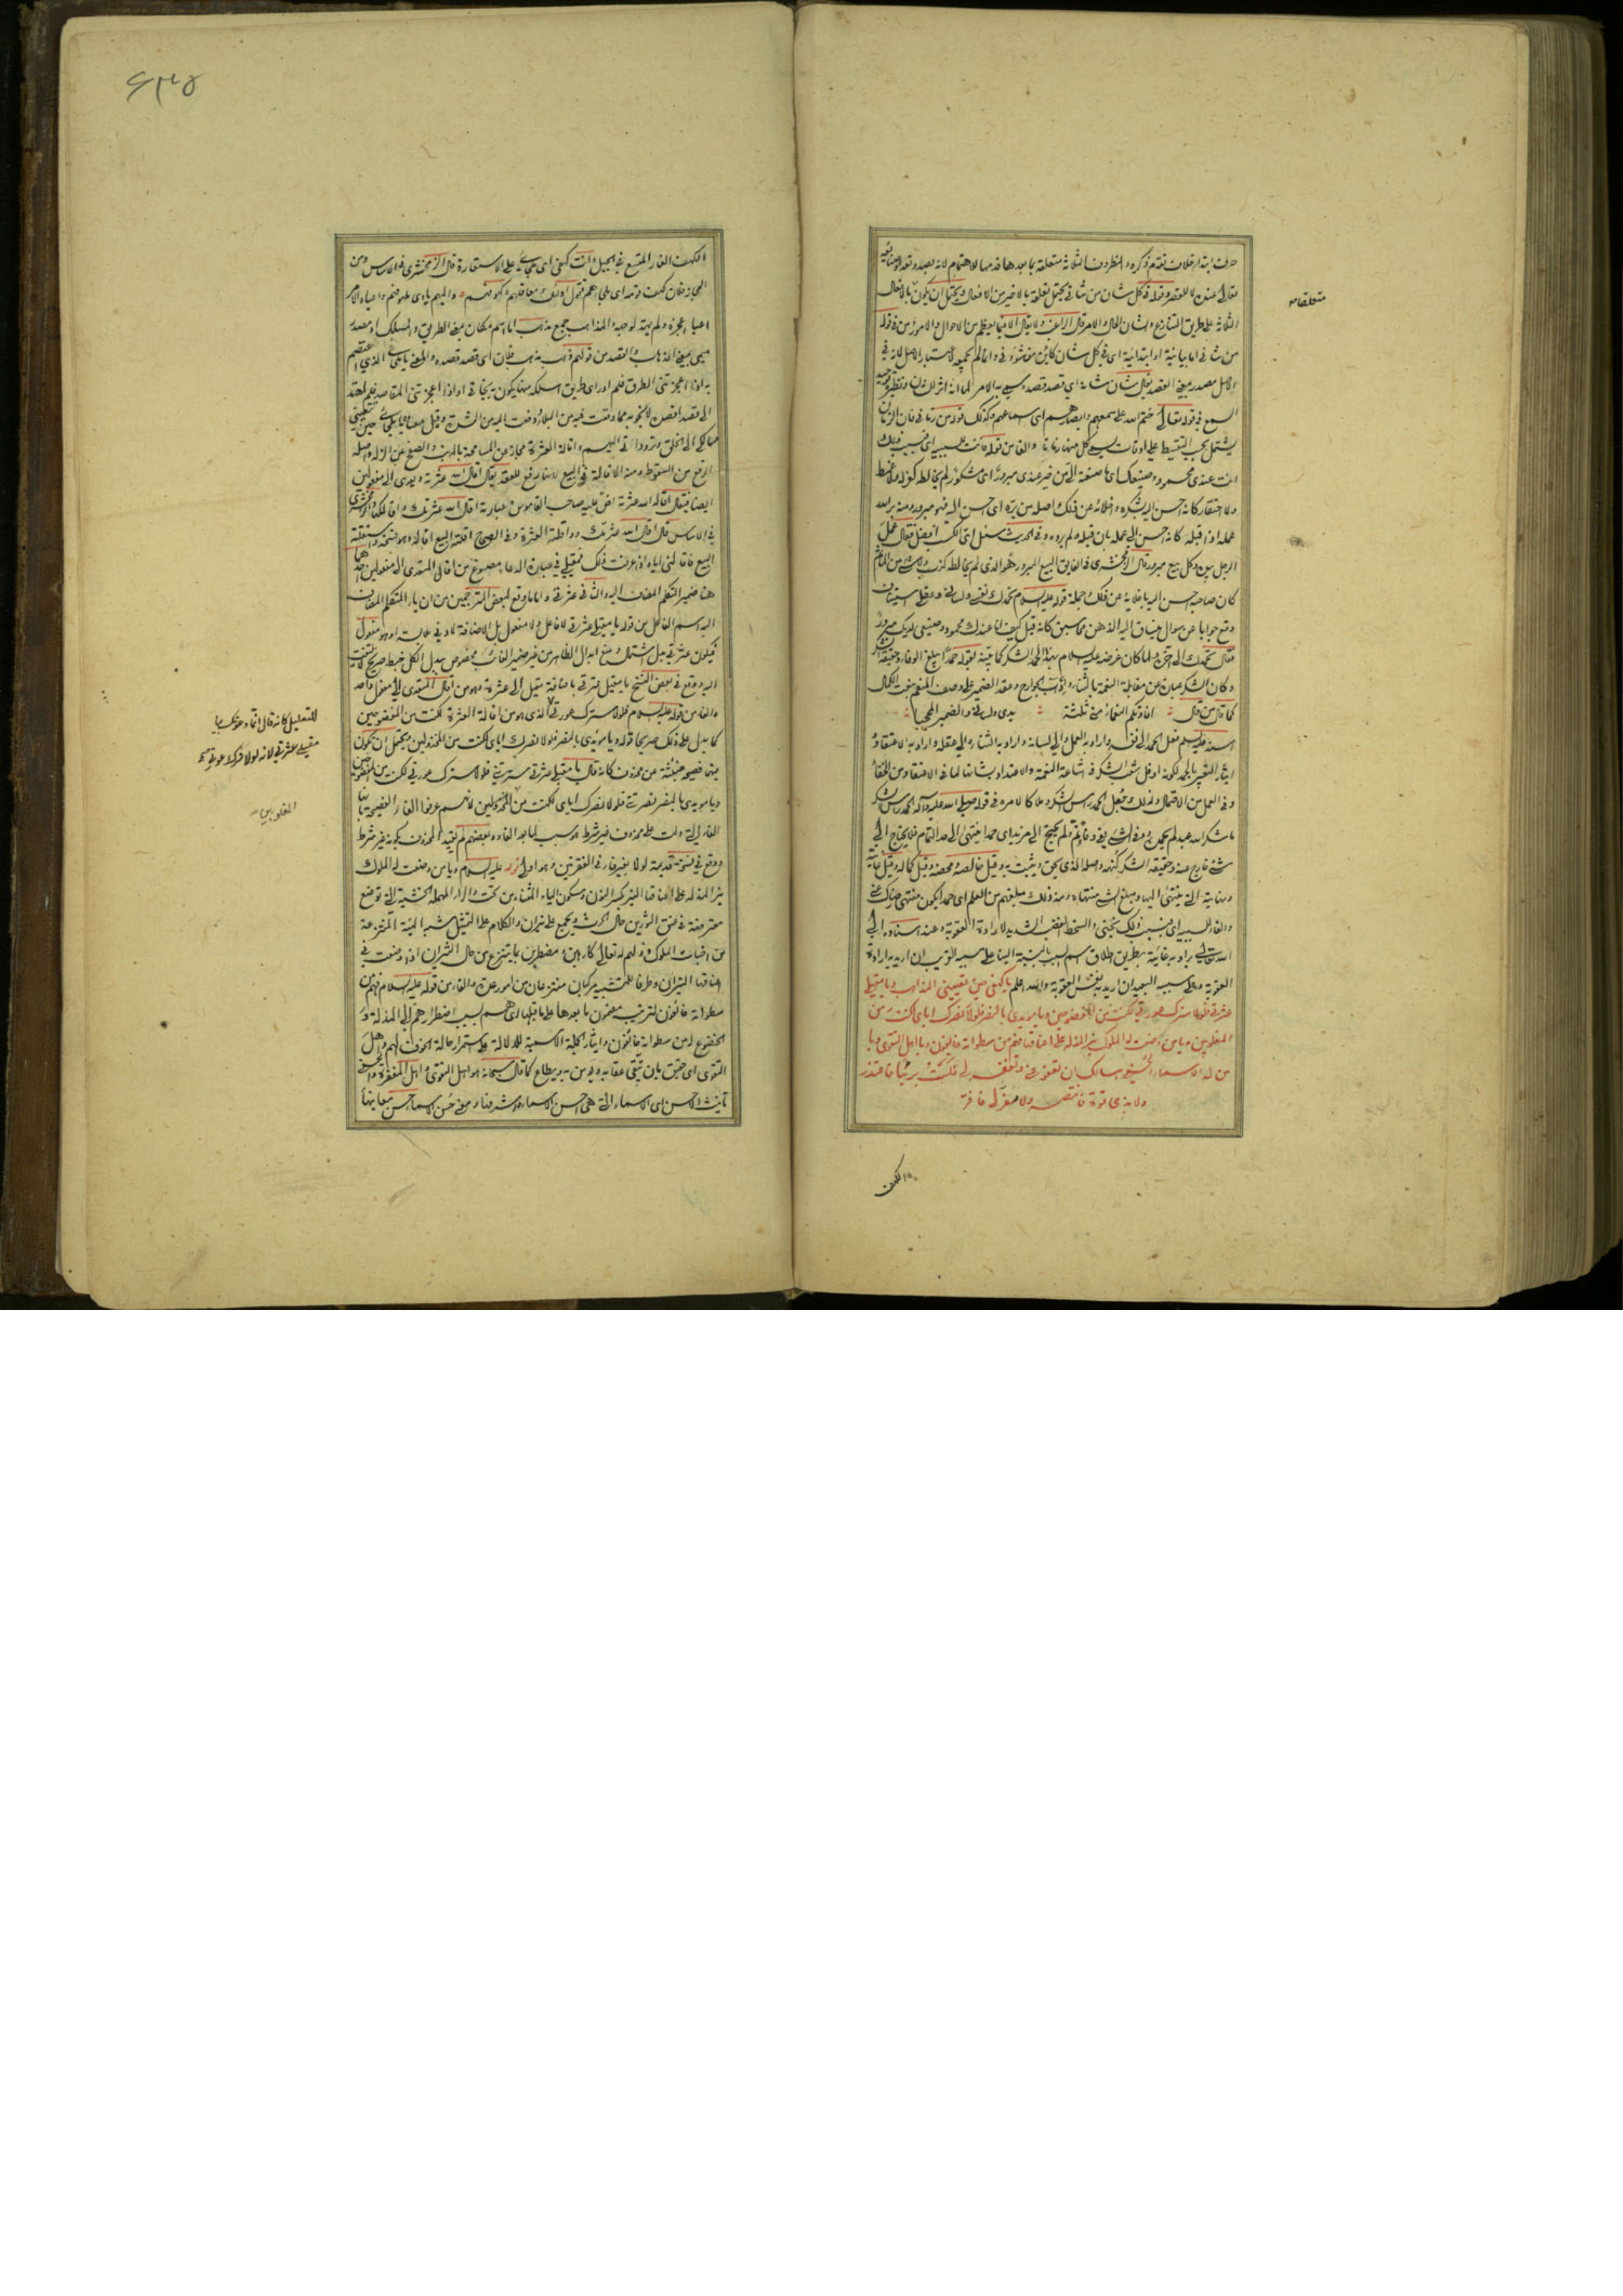 حرف ابتداء خلاف تقدم ذكره والظروف الثلاثة متعلقة بما بعدها قدمها للاهتمام لانه بصدد تعداد صنائعه
تعالى عنده لا للقصر وقوله في كل شان من شاني يحتمل تعلقه بالاخير من الافعال ويحتمل ان يكون بالافعال
الثلاثة على طريق التنازع والشان الحال والامر قال الراغب ولا يقال الا فيما يعظم من الاحوال والامور من في قوله
من شاني اما بيانية او ابتدائية اى في كل شان كاين من شئوني وانما لم يجمعه لاعتبار الاصل لانه في
الاصل مصدر بمعنى القصد يقال شان شانه اي قصد قصده سمي به الامر
السمع في قوله تعالى ختم الله على سمعهم وابصارهم اى اسماعهم وكذلك قوله من زماني فان الزمان
والفاء من قوله فانت للسببية اى فبسبب ذلك
انت عندى محمود وصنيعك اى ما صنعته الي من خير عندى مبرورا اى مشكور لم يخالطه كفر له ولا غمط
ولا احتقار كانه احسن اليه بشكره واصله من بره اى احسن اليه فهو مبرور ومنه بر الله
عمله اذا قبله كانه احسن الى عمله بان قبله ولم يرده وفي الحديث سئل اى الكسب افضل فقال عمل
الرجل بيده وكل بيع مبرور قال الزمخشري في الفايق البيع المبرور هو الذى لم يخالطه كذب ولا شيء من المآثم
كان صاحبه احسن اليه باخلائه عن ذلك وجملة قوله عليه السلام تحمدك نفسي ولساني وعقلي استيناف
وقع جوابا عن سوال ينساق اليه الذهن مما سبق كانه قيل كيف انا عندك محمود وصنيعي لديك مبرور
فقال تحمدك الى آخره ولما كان غرضه عليه السلام بهذا الحمد الشكر كما بينه بقوله حمدا يبلغ الوفاء وحقيقة الشكر
وكان الشكر عبارة عن مقابلة النعمة بالثناء وآداب الجوارح وعقد الضمير على وصف المنعم بنعت الكمال
كما قال من قال افادتكم النعماء مني ثلثة يدي ولساني والضمير المحجبا
اسند عليه السلام فعل الحمد الى نفسه واراد به العمل والى لسانه واراد به الثناء والى عقله واراد به الاعتقاد و
ايثار التعبير بالحمد لكونه ادخل شعب الشكر في اشاعة النعمة والاعتداد بشانها لما في الاعتقاد من الخفاء
وفي العمل من الاحتمال ولذلك جعل الحمد راس الشكر وملاكا لامره في قوله صلى الله عليه وآله الحمد راس الشكر
ما شكر الله عبد لم يحمده ووفى الشيء يفي وفاء تم ولم يحتج الى مزيد اى حمدا ينتهى الى حد التمام فلا يحتاج الى
شيء خارج عنه وحقيقة الشكر كنهه واصله الذي يحق ويثبت به وقيل خالصه ومحضه وقيل كماله وقيل غايته
ونهايته التي ينتهى اليها ومبلغ الشيء منتهاه ومنه ذلك مبلغهم من العلم اى حمدا يكون منتهى رضاك عني
والفاء للسببية اى فبسبب ذلك نجني والسخط الغضب الشديد لارادة العقوبة وعند اسناده الى
الله تعالى يراد به غايته بطريق اطلاق اسم السبب بالنسبة الينا على مسببه القريب ان اريد به ارادة
العقوبة وعلى مسببه البعيد ان اريد به نفس العقوبة والله اعلم يا كهفي حين تعييني المذاهب ويا مقيلي
عثرتي فلولا سترك عورتي لكنت من المفضوحين ويا مويدي بالنصر فلولا نصرك اياي لكنت من
المغلوبين ويا من وضعت له الملوك نير المذلة على اعناقها فهم من سطواته خائفون ويا اهل التقوى ويا
من له الاسماء الحسنى اسالك ان تعفو عني وتغفر لي فلست بريئا فاعتذر
ولا بذي قوة فانتصر ولا مفر لي فافر
الكهف
متعلقا
الكهف الغار المتسع في الجبل وانت كهفي اى ملجاي على الاستعارة قال الزمخشري في الاساس ومن
المجاز فلان كهف قومه اى ملجاهم تقول اولئك معاقلهم وكهوفهم واليهم ياوى ملهوفهم واعياه الامر
اعياء اعجزه ولم يهتد لوجهه والمذاهب جمع مذهب اما اسم مكان بمعنى الطريق والمسلك او مصدر
ميمي بمعنى الذهاب والقصد من قولهم ذهب مذهب فلان اى قصد قصده والمعنى يا ملجاي الذي اعتصم
به اذا اعجزتني الطرق فلم ادر اى طريق اسلكه منها يكون به نجاتي او اذا اعجزتني المقاصد فلم اهتد
الى مقصد اقصده لانجو به مما وقعت فيه من البلاء ودفعت اليه من الشدة وقيل معناه يا ملجاي حين تتعبني
مسالكي الى الخلق وتردداتي اليهم واقالة العثرة مجاز عن المسامحة بالذنب والصفح عن الزلة واصله
الرفع من السقوط ومنه الاقالة في البيع لانها رفع للعقد يقال اقال الله عثرته ويعدى الى مفعولين
ايضا فيقال اقاله الله عثرته نص عليه صاحب القاموس وعبارته اقال الله عثرتك واقالكها والزمخشرى
في الاساس قال اقال الله عثرتك واقلته العثرة وفي الصحاح اقلته البيع اقالة وهو فسخه واستقلته
البيع فاقالني اياه اذا عرفت ذلك فمقيلي في عبارة الدعاء مصوغ من اقال المتعدى الى مفعولين احدهما
هنا ضمير المتكلم المضاف اليه والثاني عثرتي واما ما وقع لبعض المترجمين من ان ياء المتكلم المضاف
اليه اسم الفاعل من قوله يا مقيلي عثرتي لا فاعل ولا مفعول بل الاضافة لادنى ملابسة او هو مفعول
فيكون عثرتي بدل اشتمال ومنع ابدال الظاهر من غير ضمير الغائب مخصوص ببدل الكل فخبط صريح لا يلتفت
اليه ووقع في بعض النسخ يا مقيل عثرتي باضافة مقيل الى عثرتي وهو من اقال المتعدى الى مفعول واحد
والفاء من قوله عليه السلام فلولا سترك عورتي الذي هو من اقالة العثرة لكنت من المفضوحين
كما يدل على ذلك صريحا قوله ويا مويدي بالنصر فلولا نصرك اياى لكنت من المخذولين ويحتمل ان يكون
فيهما فصيحة منبئة عن محذوف كانه قال يا مقيلي عثرتي سترتني فلولا سترك عورتي لكنت من المفضوحين
ويا مويدي بالنصر نصرتني فلولا نصرك اياى لكنت من المخذولين لانهم عرفوا الفاء الفصيحة بانها
الفاء التي دلت على محذوف غير شرط هو سبب لما بعد الفاء وبعضهم لم يقيد المحذوف بكونه غير شرط
ووقع في نسخة قديمة لولا بغير فاء في الفقرتين وهو اولى قوله عليه السلام ويا من وضعت له الملوك
نير المذلة على اعناقها النير بكسر النون وسكون الياء المثناة من تحت والراء المهملة الخشبة التي توضع
معترضة في عنق الثورين حال الحرث ويجمع على نيران والكلام على التمثيل شبه الهيئة المنتزعة
من اخبات الملوك وذلهم له تعالى كارهين مضطرين بما ينتزع من حال الثيران اذا وضعت في
اعناقها النيران وطرفا التشبيه مركبان منتزعان من امور عدة والفاء من قوله عليه السلام فهم من
سطواته خائفون لترتيب مضمون ما بعدها على ما قبلها اى هم بسبب اضطرارهم الى المذلة و
الخضوع له من سطواته خائفون وايثار الجملة الاسمية للدلالة على استمرار حالة الخوف لهم واهل
التقوى اى حقيق بان يتقى عقابه ويومن به ويطاع كما قال سبحانه هو اهل التقوى واهل المغفرة والحسنى
تانيث الاحسن اى الاسماء التي هي احسن الاسماء واشرفها ومعنى حسن الاسماء حسن معانيها
للتعليل كانه قال
مقيلي عثرتي لانه لولا سترك عورتي
المغلوبين